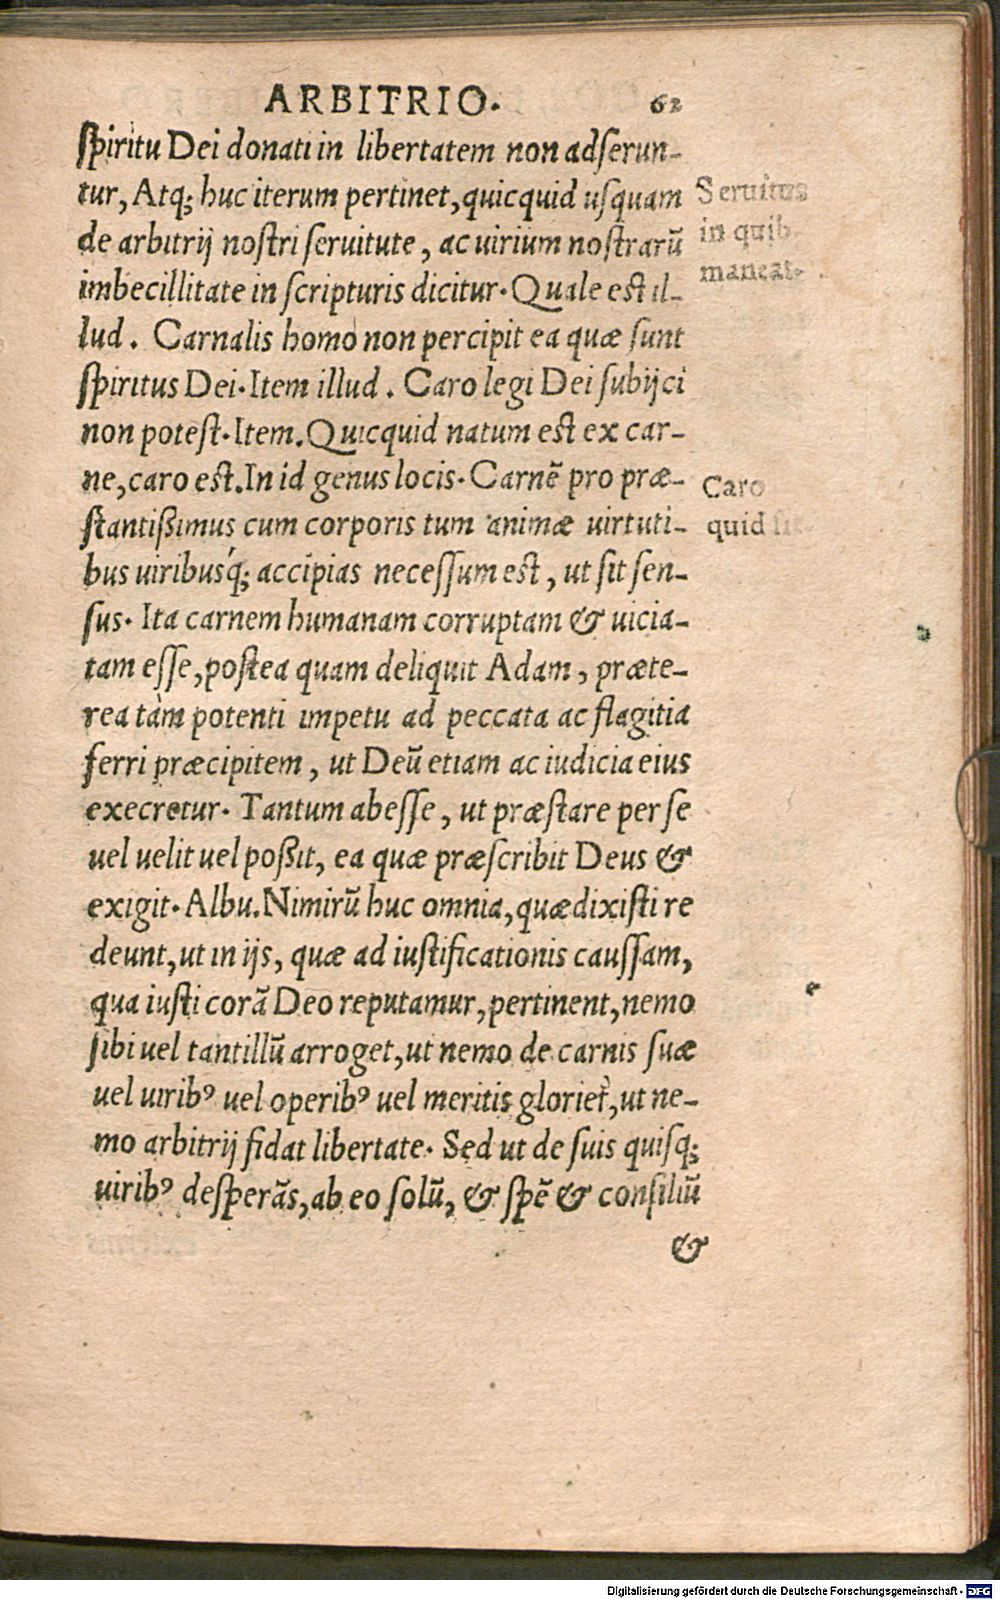 ARBITRIO. 62
ſpiritu Dei donati in libertatem non adſerun-
tur, Atq; huc iterum pertinet, quicquid uſquam
de arbitrij noſtri ſeruitute, ac uirium noſtrarū
imbecillitate in ſcripturis dicitur. Quale eſt il-
lud. Carnalis homo non percipit ea quæ ſunt
ſpiritus Dei. Item illud. Caro legi Dei ſubijci
non poteſt. Item. Quicquid natum eſt ex car-
ne, caro eſt. In id genus locis. Carnē pro præ-
ſtantißimus cum corporis tum animæ uirtuti-
bus uiribusq́; accipias neceſſum eſt, ut ſit ſen-
ſus. Ita carnem humanam corruptam & uicia-
tam eſſe, poſtea quam deliquit Adam, præte-
rea tàm potenti impetu ad peccata ac flagitia
ferri præcipitem, ut Deū etiam ac iudicia eius
execretur. Tantum abeſſe, ut præſtare per ſe
uel uelit uel poßit, ea quæ præſcribit Deus &
exigit. Albu. Nimirū huc omnia, quæ dixiſti re
deunt, ut in ijs, quæ ad iuſtificationis cauſſam,
qua iuſti corā Deo reputamur, pertinent, nemo
ſibi uel tantillū arroget, ut nemo de carnis ſuæ
uel uirib⁹ uel operib⁹ uel meritis gloriet̃, ut ne-
mo arbitrij fidat libertate. Sed ut de ſuis quiſq;
uirib⁹ deſperās, ab eo ſolū, & ſpē & conſiliū
&
Seruitus
in quib.
maneat.
Caro
quid ſit
Digitalisierung gefördert durch die Deutsche Forschungsgemeinschaft - DFG